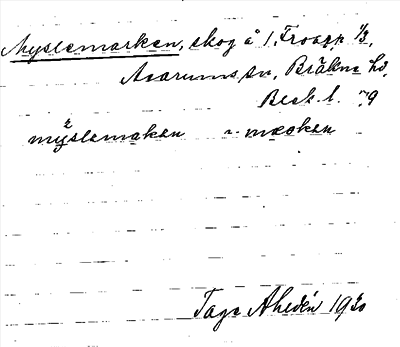 Myslemarken, skog å 1 Froarp 1/3,
Asarums sn, Bräkne hd,
Blek. l. 79
mýslemaken ~ mašken
Tage Ahldén 1930